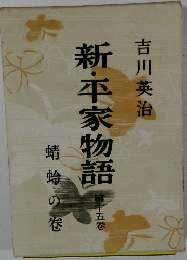 吉川英治
新・平家物語
第十五巻
蜻蛉の巻